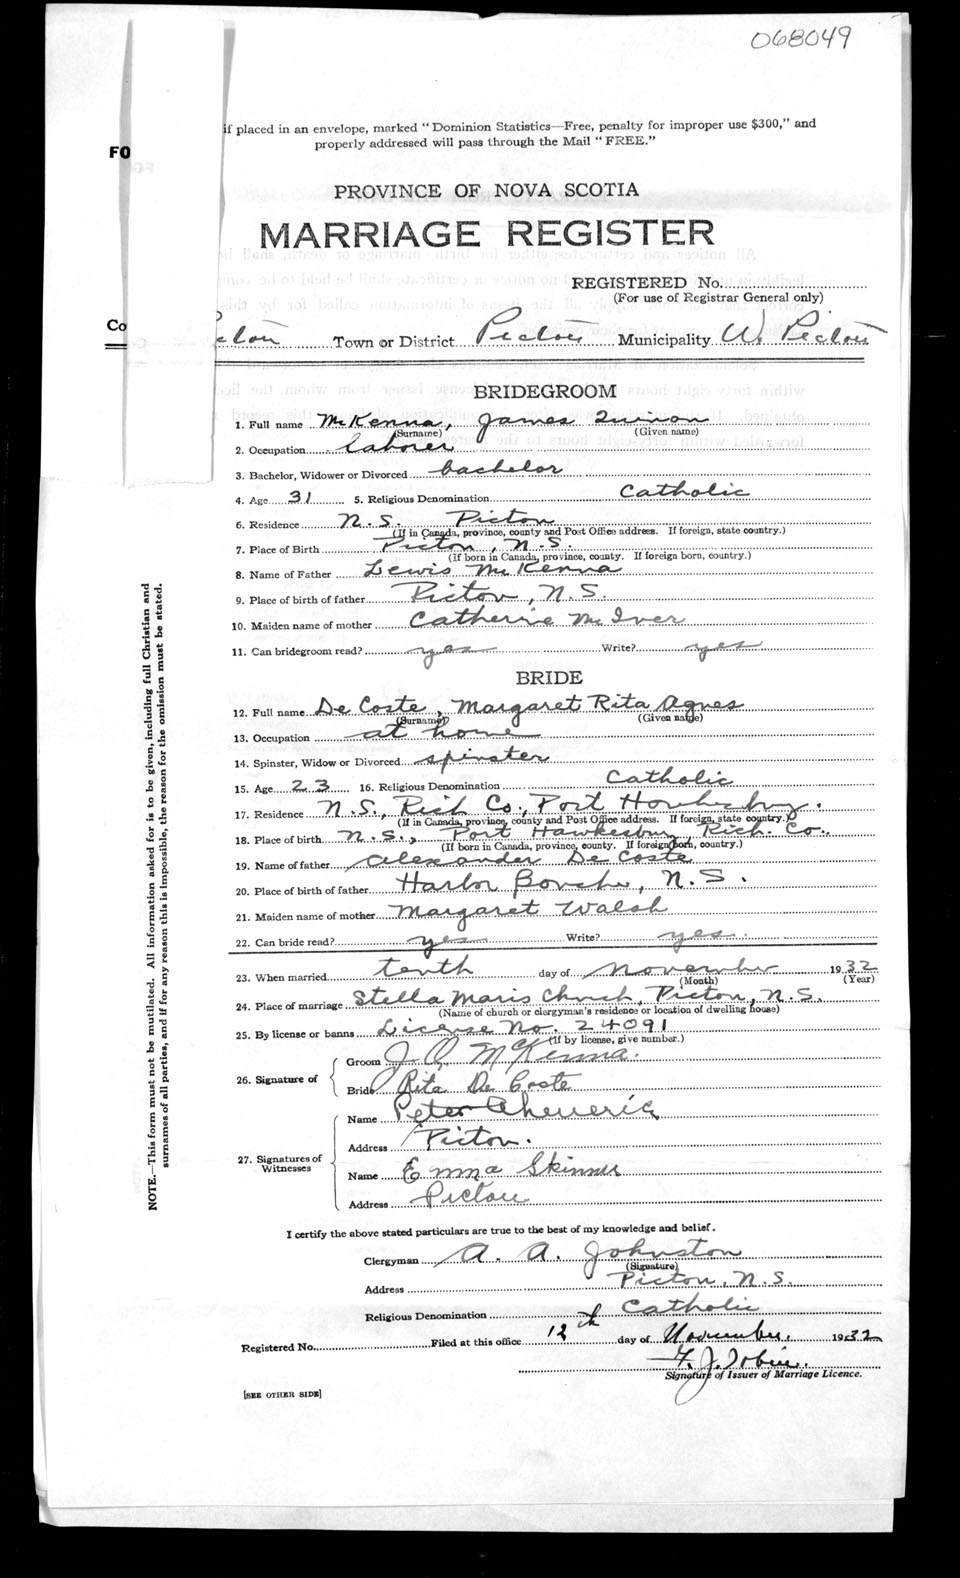 068049
if placed in an envelope, marked "Dominion Statistics—Free, penalty for improper use $300," and
properly addressed will pass through the Mail "FREE."
FO
PROVINCE OF NOVA SCOTIA
MARRIAGE REGISTER
REGISTERED No.
(For use of Registrar General only)
Co
Town or District Pictou Municipality W. Pictou
BRIDEGROOM
1. Full name McKenna, James
(Surname) (Given name)
2. Occupation laborer
3. Bachelor, Widower or Divorced bachelor
4. Age 31 5. Religious Denomination Catholic
6. Residence N.S. Picton
(If in Canada, province, county and Post Office address. If foreign, state country.)
7. Place of Birth Picton, N.S.
(If born in Canada, province, county. If foreign born, country.)
8. Name of Father Lewis McKenna
9. Place of birth of father Picton, N.S.
10. Maiden name of mother Catherine McIver
11. Can bridegroom read? yes Write? yes
BRIDE
12. Full name De Coste, Margaret Rita Agnes
(Surname) (Given name)
13. Occupation at home
14. Spinster, Widow or Divorced spinster
15. Age 23 16. Religious Denomination Catholic
17. Residence N.S., Rich Co., Port
(If in Canada, province, county and Post Office address. If foreign, state country.)
18. Place of birth N.S., Port Hawkesbury, Rich. Co.,
(If born in Canada, province, county. If foreign born, country.)
19. Name of father Alexander De Coste
20. Place of birth of father Harbor Bouche, N.S.
21. Maiden name of mother Margaret Walsh
22. Can bride read? yes Write? yes.
23. When married tenth day of November 1932
(Month) (Year)
24. Place of marriage Stella Maris Church, Picton, N.S.
(Name of church or clergyman's residence or location of dwelling house)
25. By license or banns License No. 24091
(If by license, give number.)
26. Signature of
Groom J. Q. McKenna.
Bride Rita De Coste
27. Signatures of Witnesses
Name Peter
Address Picton.
Name Emma Skinner
Address Pictou
I certify the above stated particulars are true to the best of my knowledge and belief.
Clergyman A. A. Johnston
(Signature)
Address Picton, N.S.
Religious Denomination Catholic
Registered No. Filed at this office 12th day of November. 1932
F. J. Tobin.
Signature of Issuer of Marriage Licence.
[SEE OTHER SIDE]
NOTE.—This form must not be mutilated. All information asked for is to be given, including full Christian and
surnames of all parties, and if for any reason this is impossible, the reason for the omission must be stated.